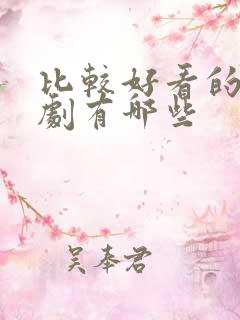 比較好看的
劇有哪些
吴奉君